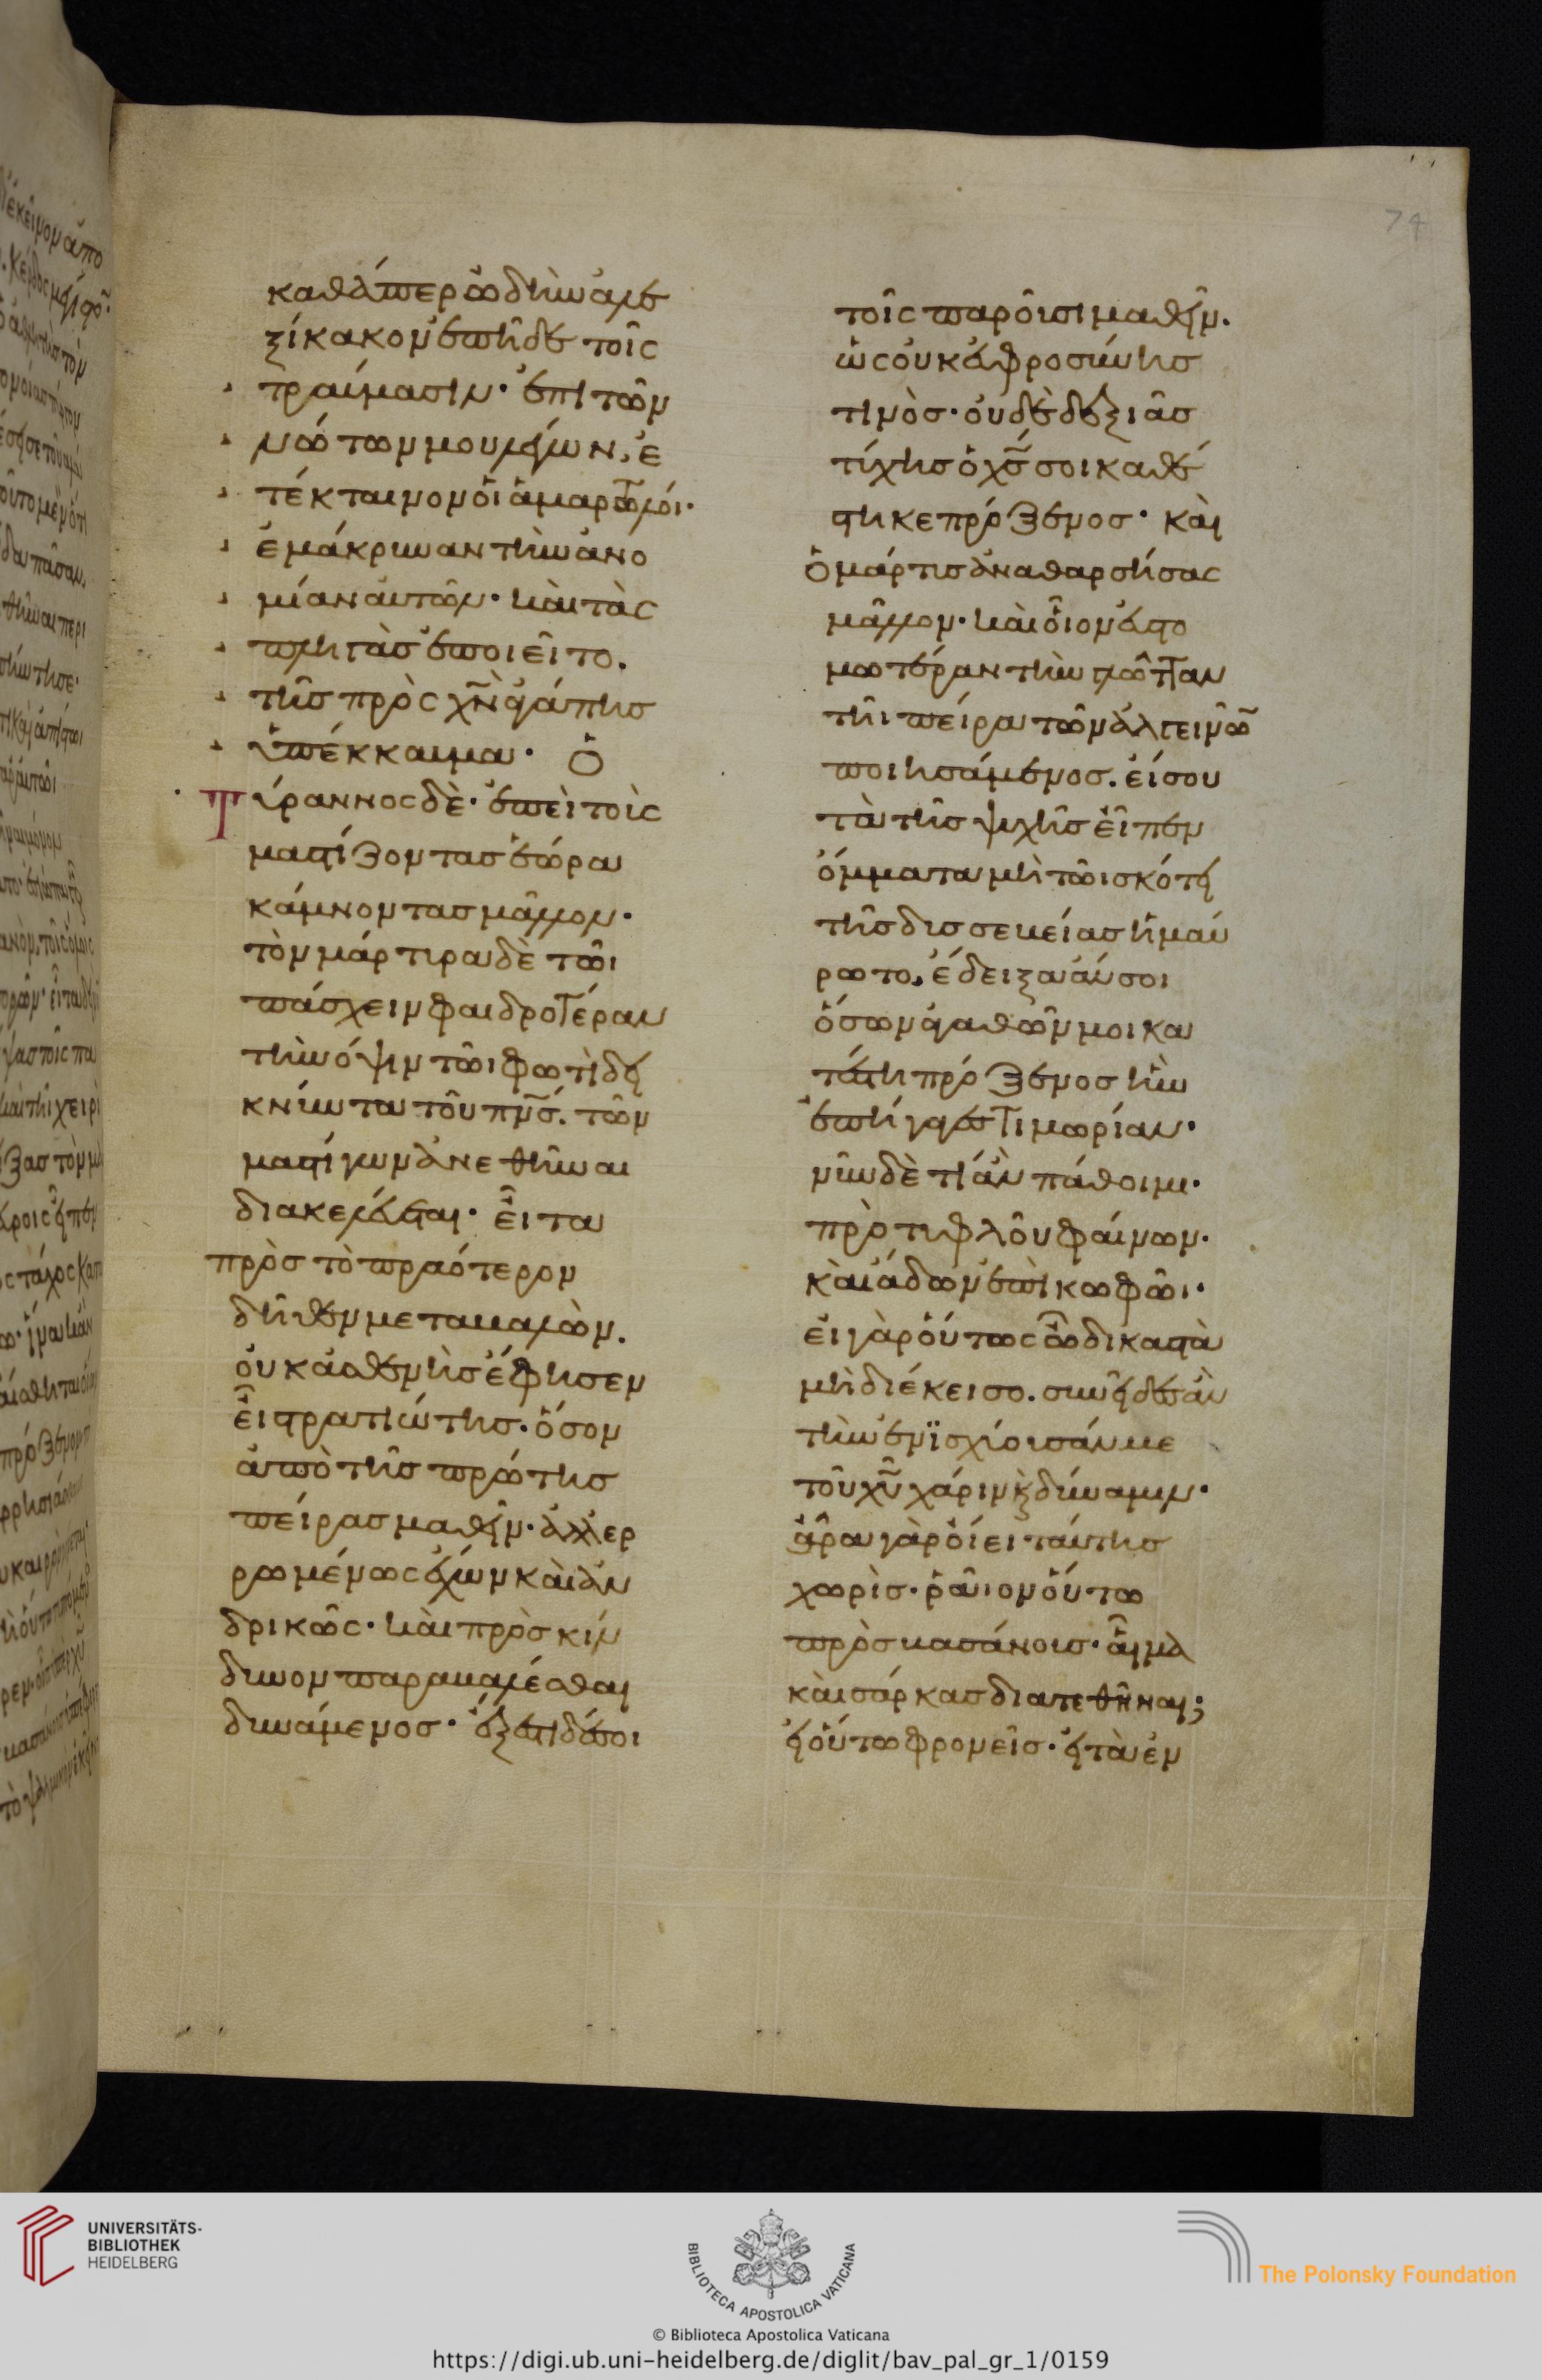 74
καθάπερ ὠδὴν ἀλε
ξίκακον ἐπῆδε τοῖς
τραύμασιν· ἐπὶ τῶν
νώτων μου λέγων, ἐ
τέκταινον οἱ ἁμαρτωλοί·
ἐμάκρυναν τὴν ἀνο
μίαν αὐτῶν· καὶ τὰς
πληγὰς ἐποιεῖτο.
τῆς πρὸς χ̅ν̅ ἀγάπης
ὑπέκκαυμα· ὁ
Τύραννος δὲ· ἐπεὶ τοὺς
μαστίζοντας ἑώρα
κάμνοντας μᾶλλον·
τὸν μάρτυρα δὲ τῶι
πάσχειν φαιδροτέραν
τὴν ὄψιν τῶι φωτὶ δει
κνύντα τοῦ π̅ν̅ς̅. τῶν
μαστίγων ἀνεθῆναι
διακελεύεται· εἶτα
πρὸς τὸ πραότερον
δῆθεν μεταβαλὼν.
οὐκ ἀσθενὴς ἔφησεν
εἶ στρατιώτης· ὅσον
ἀπὸ τῆς πρώτης
πείρας μαθεῖν· ἀλλ ἐρ
ρωμένως ἔχων καὶ ἀν
δρικῶς· καὶ πρὸς κίν
δυνον παραβαλέσθαι
δυνάμενος· ἔξεστι δέ σοι
τοῖς παροῦσι μαθεῖν.
ὡς οὐκ ἀφροσύνης
τινὸς· οὐδὲ δεξιᾶς
τύχης ὁ χ̅ς̅ σοι καθέ
στηκε πρόξενος· καὶ
ὁ μάρτυς ἀναθαρσήσας
μᾶλλον· καὶ οἷον εὐστο
μωτέραν τὴν γλῶτταν
τῆι πείρα τῶν ἀλγεινῶν
ποιησάμενος. εἰ σου
τὰ τῆς ψυχῆς εἶπεν
ὄμματα μὴ τῶι σκότει
τῆς δυσσεβείας ἠμαύ
ρωτο, ἔδειξα ἄν σοι
ὅσων ἀγαθῶν μοι κα
τέστη πρόξενος ἣν
ἐπήγαγες τιμωρίαν·
νῦν δὲ τί ἂν πάθοιμι·
πρὸ τυφλοῦ φαίνων·
καὶ ἄδων ἐπὶ κωφῶι·
εἰ γὰρ οὕτως ὦ δικαστὰ
μὴ διέκεισο. συνεῖδες ἂν
τὴν ἐνϊσχύουσάν με
τοῦ χ̅υ̅ χάριν κ̀ δύναμιν·
ἆρα γὰρ οἴει ταύτης
χωρὶς· ῥᾶιον οὕτω
πρὸς βασάνους· αἷμα
καὶ σάρκας διατεθῆναι;
εἰ οὕτω φρονεῖς· εἰ τὰ ἐν
UNIVERSITÄTS-
BIBLIOTHEK
HEIDELBERG
BIBLIOTECA APOSTOLICA VATICANA
The Polonsky Foundation
© Biblioteca Apostolica Vaticana
https://digi.ub.uni-heidelberg.de/diglit/bav_pal_gr_1/0159